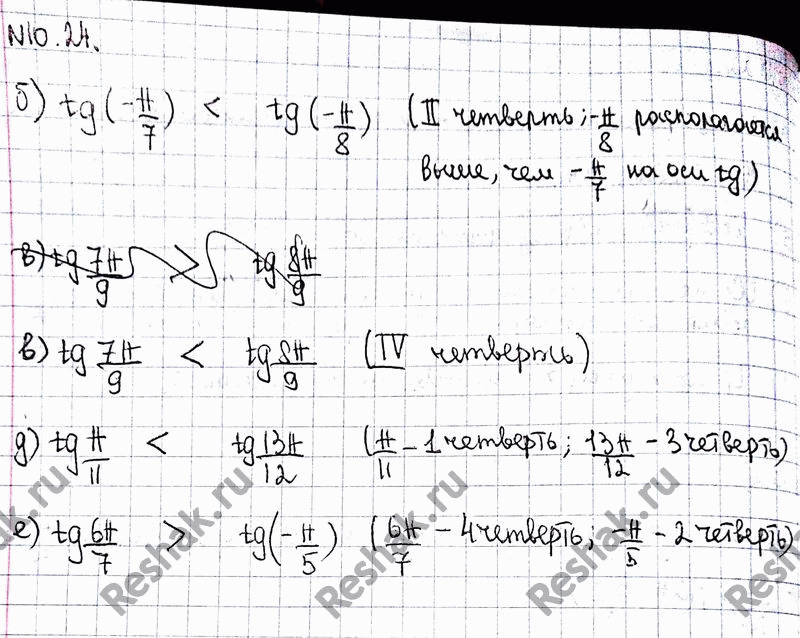 №10.24.
б) tg(-π/7) < tg(-π/8) (II четверть; -π/8 располагается
выше, чем -π/7 на оси tg)
в) tg 7π/9 > tg 8π/9
в) tg 7π/9 < tg 8π/9 (IV четверть)
д) tg π/11 < tg 13π/12 (π/11 - 1 четверть; 13π/12 - 3 четверть)
е) tg 6π/7 > tg(-π/5) (6π/7 - 4 четверть; -π/5 - 2 четверть)
Reshak.ru
Reshak.ru
Reshak.ru
Reshak.ru